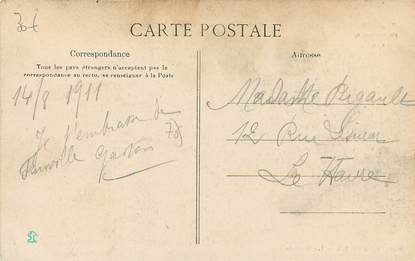 30€
CARTE POSTALE
Correspondance
Tous les pays étrangers n'acceptent pas la
correspondance au recto, se renseigner à la Poste
Adresse
14/8 1911
Je t'embrasse de
Gaston
Rigault
12 Rue
Le Havre